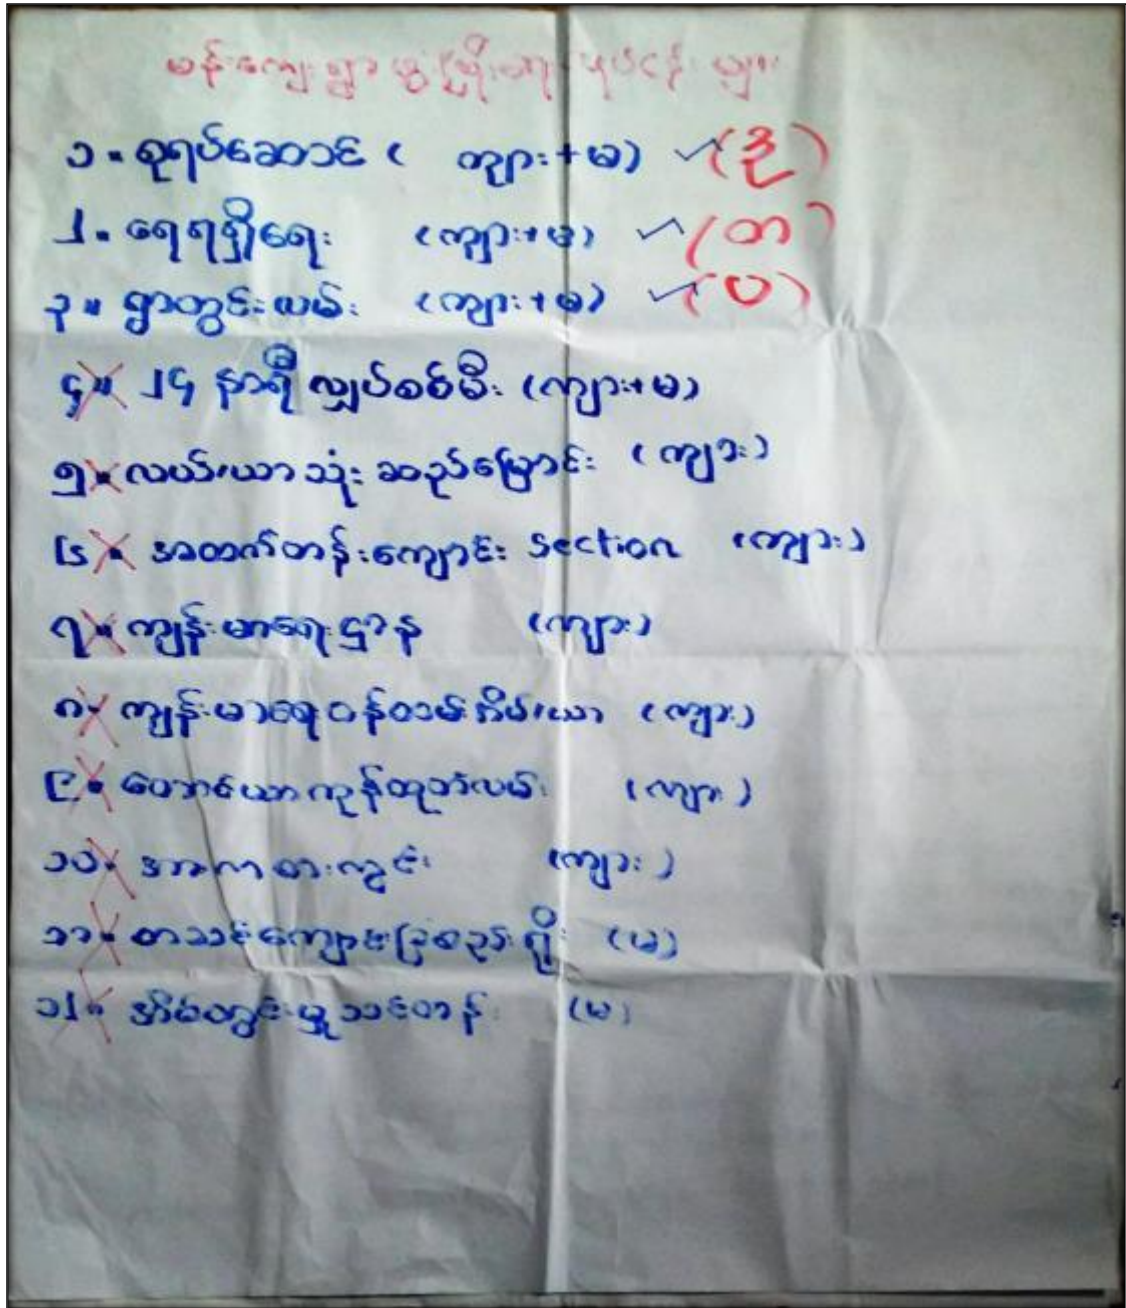 မန်ကျေးရွာ ဖွံ့ဖြိုးရေး လုပ်ငန်းများ
၁။ စုရပ်ဆောင် ( ကျား+မ) ✓(ဒု)
၂။ ရေရရှိရေး (ကျား+မ) ✓(တ)
၃။ ရွာတွင်းလမ်း (ကျား+မ) ✓(ပ)
၄။ ၂၄ နာရီ လျှပ်စစ်မီး (ကျား+မ)
၅။ လယ်/ယာသုံး ဆည်မြောင်း (ကျား)
၆။ အထက်တန်းကျောင်း section (ကျား)
၇။ ကျန်းမာရေးဌာန (ကျား)
၈။ ကျန်းမာရေးဝန်ထမ်းအိမ်/ယာ (ကျား)
၉။ တောင်ယာကုန်ထုတ်လမ်း (ကျား)
၁၀။ အားကစားကွင်း (ကျား)
၁၁။ စာသင်ကျောင်းခြံစည်းရိုး (မ)
၁၂။ အိမ်တွင်းမှုသင်တန်း (မ)